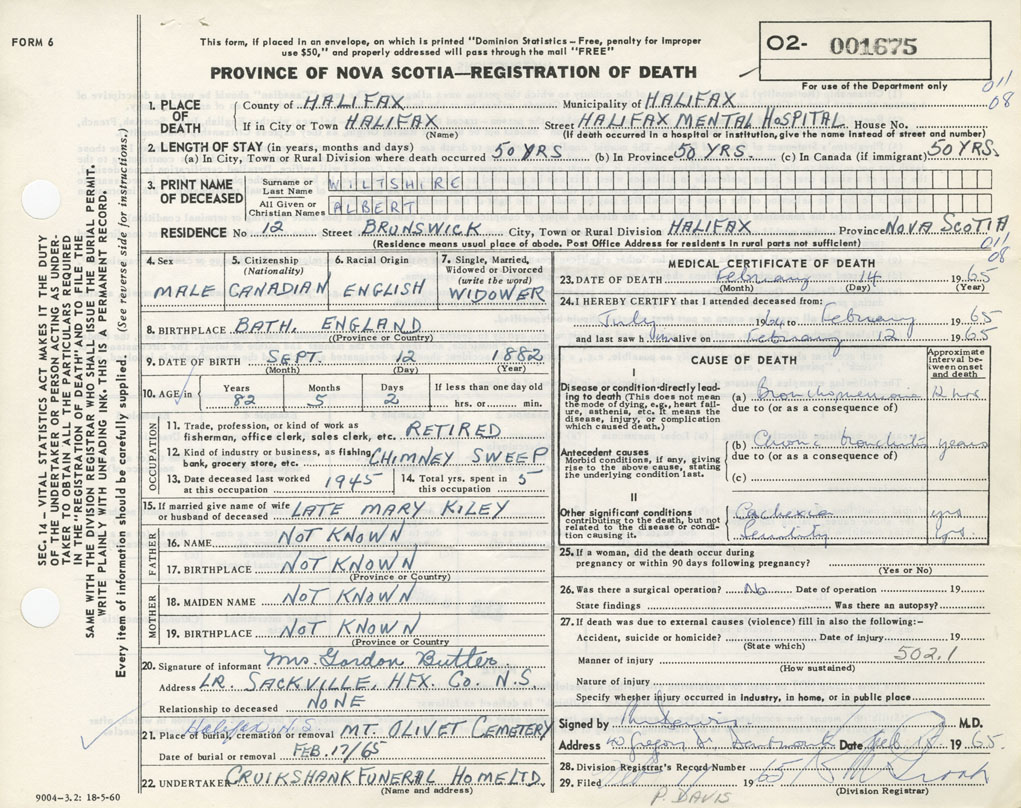 FORM 6
This form, if placed in an envelope, on which is printed "Dominion Statistics – Free, penalty for improper
use $50," and properly addressed will pass through the mail "FREE"
PROVINCE OF NOVA SCOTIA—REGISTRATION OF DEATH
02- 001675
For use of the Department only
011
08
1. PLACE OF DEATH
County of HALIFAX Municipality of HALIFAX
If in City or Town HALIFAX Street HALIFAX MENTAL HOSPITAL House No.
(Name) (If death occurred in a hospital or institution, give the name instead of street and number)
2. LENGTH OF STAY (in years, months and days)
(a) In City, Town or Rural Division where death occurred 50 YRS (b) In Province 50 YRS. (c) In Canada (if immigrant) 50 YRS.
3. PRINT NAME OF DECEASED
Surname or Last Name WILTSHIRE
All Given or Christian Names ALBERT
RESIDENCE No 12 Street BRUNSWICK City, Town or Rural Division HALIFAX Province NOVA SCOTIA
(Residence means usual place of abode. Post Office Address for residents in rural parts not sufficient)
011
08
4. Sex MALE
5. Citizenship (Nationality) CANADIAN
6. Racial Origin ENGLISH
7. Single, Married, Widowed or Divorced (write the word) WIDOWER
8. BIRTHPLACE BATH, ENGLAND
(Province or Country)
9. DATE OF BIRTH SEPT. 12 1882
(Month) (Day) (Year)
10. AGE in
Years Months Days If less than one day old
82 5 2 hrs. or min.
OCCUPATION
11. Trade, profession, or kind of work as
fisherman, office clerk, sales clerk, etc. RETIRED
12. Kind of industry or business, as fishing,
bank, grocery store, etc. CHIMNEY SWEEP
13. Date deceased last worked at this occupation 1945
14. Total yrs. spent in this occupation 5
15. If married give name of wife
or husband of deceased LATE MARY KILEY
FATHER
16. NAME NOT KNOWN
17. BIRTHPLACE NOT KNOWN
(Province or Country)
MOTHER
18. MAIDEN NAME NOT KNOWN
19. BIRTHPLACE NOT KNOWN
(Province or Country)
20. Signature of informant Mrs. Gordon Butler
Address LR. SACKVILLE, HFX. Co. N.S.
Relationship to deceased NONE
Halifax, N.S.
21. Place of burial, cremation or removal MT. OLIVET CEMETERY
Date of burial or removal FEB. 17/65
22. UNDERTAKER CRUIKSHANK FUNERAL HOME LTD.
(Name and address)
9004-3.2: 18-5-60
MEDICAL CERTIFICATE OF DEATH
23. DATE OF DEATH February 14 1965
(Month) (Day) (Year)
24. I HEREBY CERTIFY that I attended deceased from:
July 1964 to February 1965
and last saw him alive on February 12 1965
CAUSE OF DEATH
Approximate interval between onset and death
I
Disease or condition directly leading
to death (This does not mean
the mode of dying, e.g., heart failure,
asthenia, etc. It means the
disease, injury, or complication
which caused death.)
(a) Bronchopneumonia
due to (or as a consequence of)
Antecedent causes
Morbid conditions, if any, giving
rise to the above cause, stating
the underlying condition last.
(b) Chronic bronchitis years
due to (or as a consequence of)
(c)
II
Other significant conditions
contributing to the death, but not
related to the disease or condition
causing it.
Cachexia yrs
Senility yrs.
25. If a woman, did the death occur during
pregnancy or within 90 days following pregnancy?
(Yes or No)
26. Was there a surgical operation? No Date of operation 19
State findings Was there an autopsy?
27. If death was due to external causes (violence) fill in also the following:-
Accident, suicide or homicide? Date of injury 19
(State which)
502.1
Manner of injury
(How sustained)
Nature of injury
Specify whether injury occurred in industry, in home, or in public place
Signed by M.D.
Address Date Feb 1965.
28. Division Registrar's Record Number
29. Filed 1965
(Division Registrar)
P. DAVIS
SEC. 14—VITAL STATISTICS ACT MAKES IT THE DUTY
OF THE UNDERTAKER OR PERSON ACTING AS UNDERTAKER
TO OBTAIN ALL THE PARTICULARS REQUIRED
IN THE "REGISTRATION OF DEATH" AND TO FILE THE
SAME WITH THE DIVISION REGISTRAR WHO SHALL ISSUE THE BURIAL PERMIT.
WRITE PLAINLY WITH UNFADING INK. THIS IS A PERMANENT RECORD.
Every item of information should be carefully supplied. (See reverse side for instructions.)